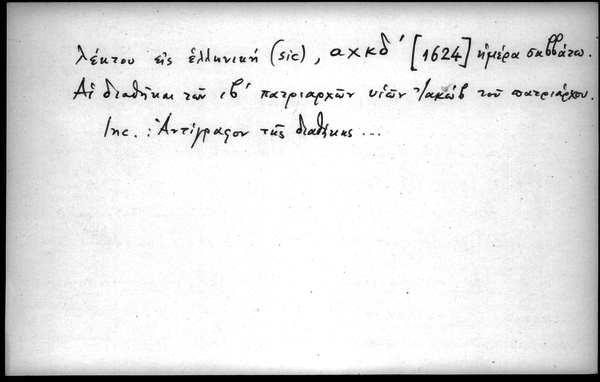 λέκτου εἰς ἑλληνική (sic), αχκδ´ [1624] ἡμέρα σαββάτω.
Αἱ διαθῆκαι τῶν ιβ´ πατριαρχῶν υἱῶν Ἰακώβ τοῦ πατριάρχου.
Inc. : Ἀντίγραφον τῆς διαθήκης ...